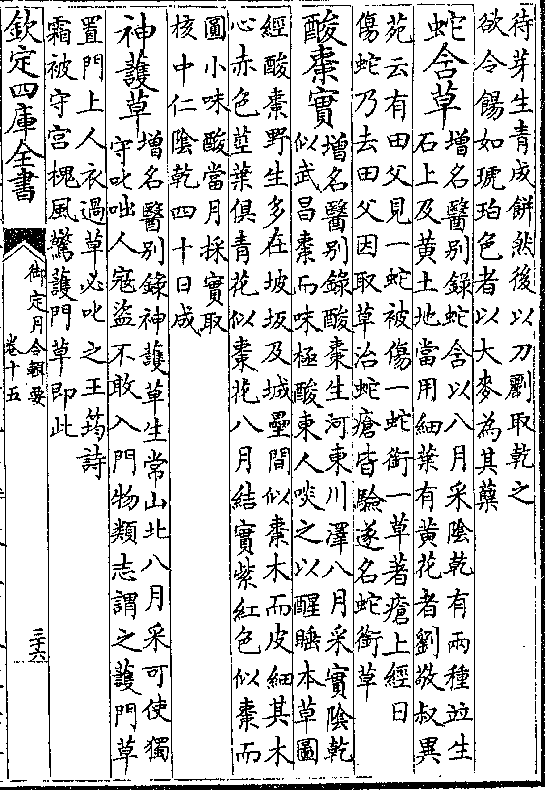 待芽生青成餅然後以刀劚取乾之
欲令餳如琥珀色者以大麥為其蘗
蛇含草增名醫别錄蛇含以八月采陰乾有兩種並生
石上及黃土地當用細葉有黃花者劉敬叔異
苑云有田父見一蛇被傷一蛇銜一草著瘡上經日
傷蛇乃去田父因取草治蛇瘡皆驗遂名蛇銜草
酸棗實增名醫别錄酸棗生河東川澤八月采實陰乾
似武昌棗而味極酸東人啖之以醒睡本草圖
經酸棗野生多在坡坂及城壘間似棗木而皮細其木
心赤色莖葉俱青花似棗花八月結實紫紅色似棗而
圓小味酸當月採實取
核中仁陰乾四十日成
神護草增名醫别錄神護草生常山北八月采可使獨
守叱咄人寇盜不敢入門物類志謂之護門草
置門上人衣過草必叱之王筠詩
霜被守宮槐風驚護門草即此
欽定四庫全書
御定月令輯要
卷十五
三十六